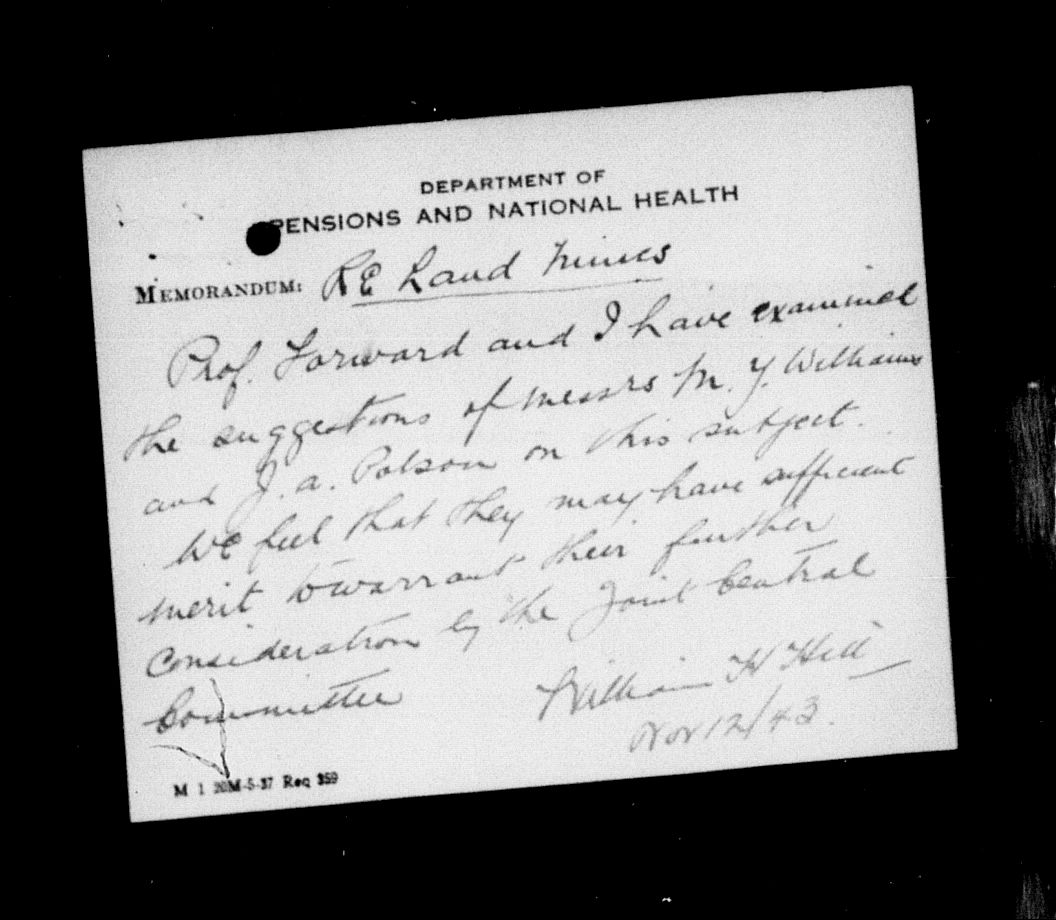 DEPARTMENT OF
PENSIONS AND NATIONAL HEALTH
MEMORANDUM: RE Land Mines
Prof. Forward and I have examined
the suggestions of Messrs M. Y. Williams
and J. A. Polson on this subject.
We feel that they may have sufficient
merit to warrant their further
consideration by the Joint Central
Committee
William H Hill
Nov 12/43.
M 1 20M-5-37 Req 359